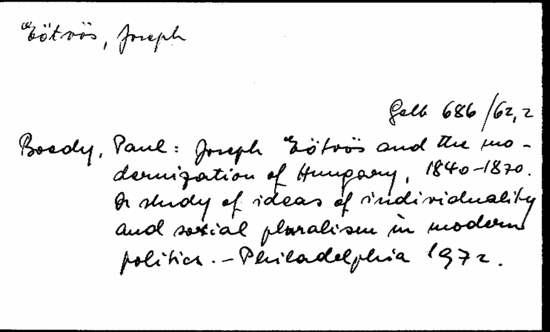 Eötvös, Joseph
Gelb 686/62,2
Boedy, Paul: Joseph Eötvös and the mo-
dernization of Hungary, 1840-1870.
A study of ideas of individuality
and social pluralism in modern
politics. - Philadelphia 1972.